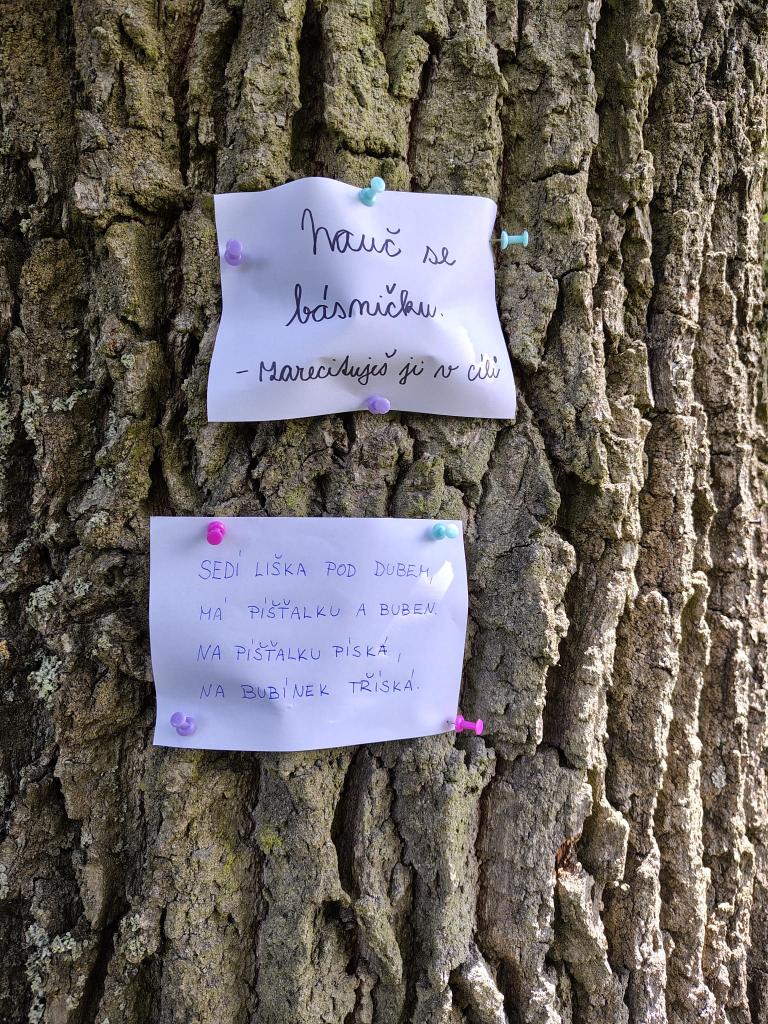 Nauč se
básničku.
- Zarecituješ ji v cíli
SEDÍ LIŠKA POD DUBEM,
MÁ PÍŠŤALKU A BUBEN.
NA PÍŠŤALKU PÍSKÁ,
NA BUBÍNEK TŘÍSKÁ.